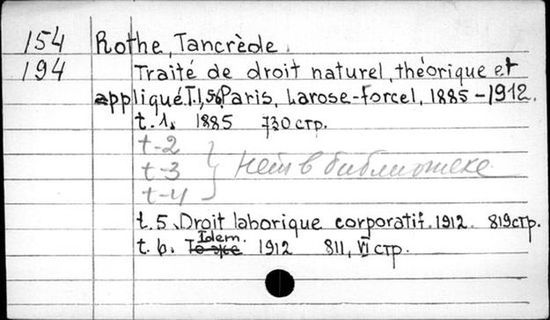 154 Rothe, Tancrède.
194 Traité de droit naturel, théorique et
appliqué. T.1,5,6. Paris, Larose-Forcel, 1885-1912.
t.1. 1885 730 стр.
t-2
t-3 нет в библиотеке
t-4
t.5. Droit laborique corporatif. 1912. 819 стр.
Idem.
t.6. То же 1912 811, VI стр.